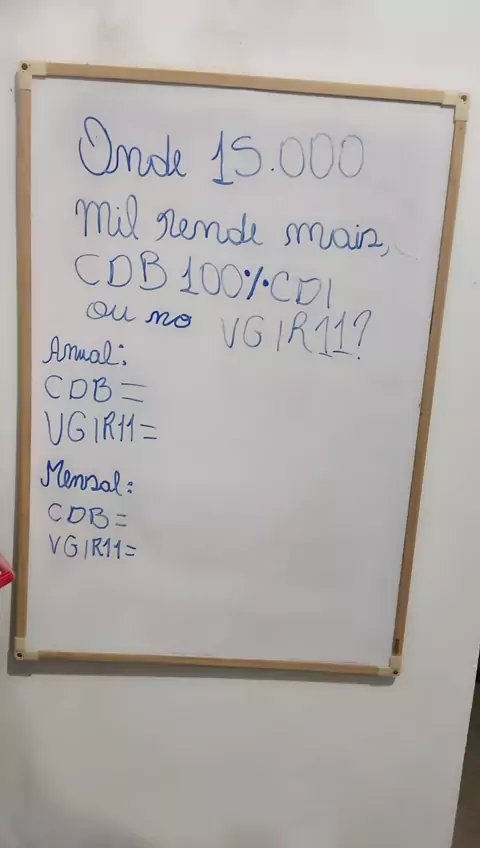 Onde 15.000
Mil rende mais,
CDB 100% CDI
ou no VGIR11?
Anual:
CDB=
VGIR11=
Mensal:
CDB=
VGIR11=